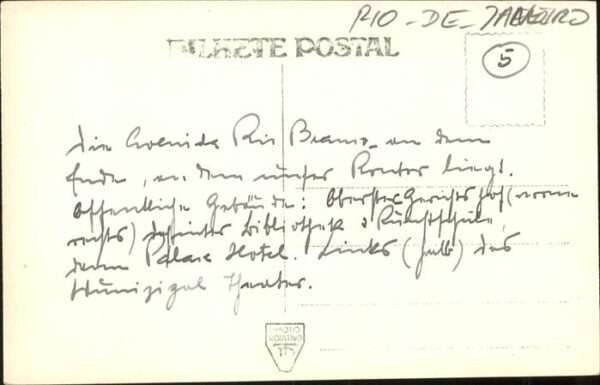 RIO-DE-JANEIRO
BILHETE POSTAL
5
Die Avenida Rio Branco - an dem
Ende, an dem unser Kontor liegt.
Öffentliche Gebäude: Oberster Gerichtshof (vorne
rechts) dahinter Bibliothek & Kunstschule,
dann Palace Hotel. Links (halb) das
Munizipal Theater.
FOTO